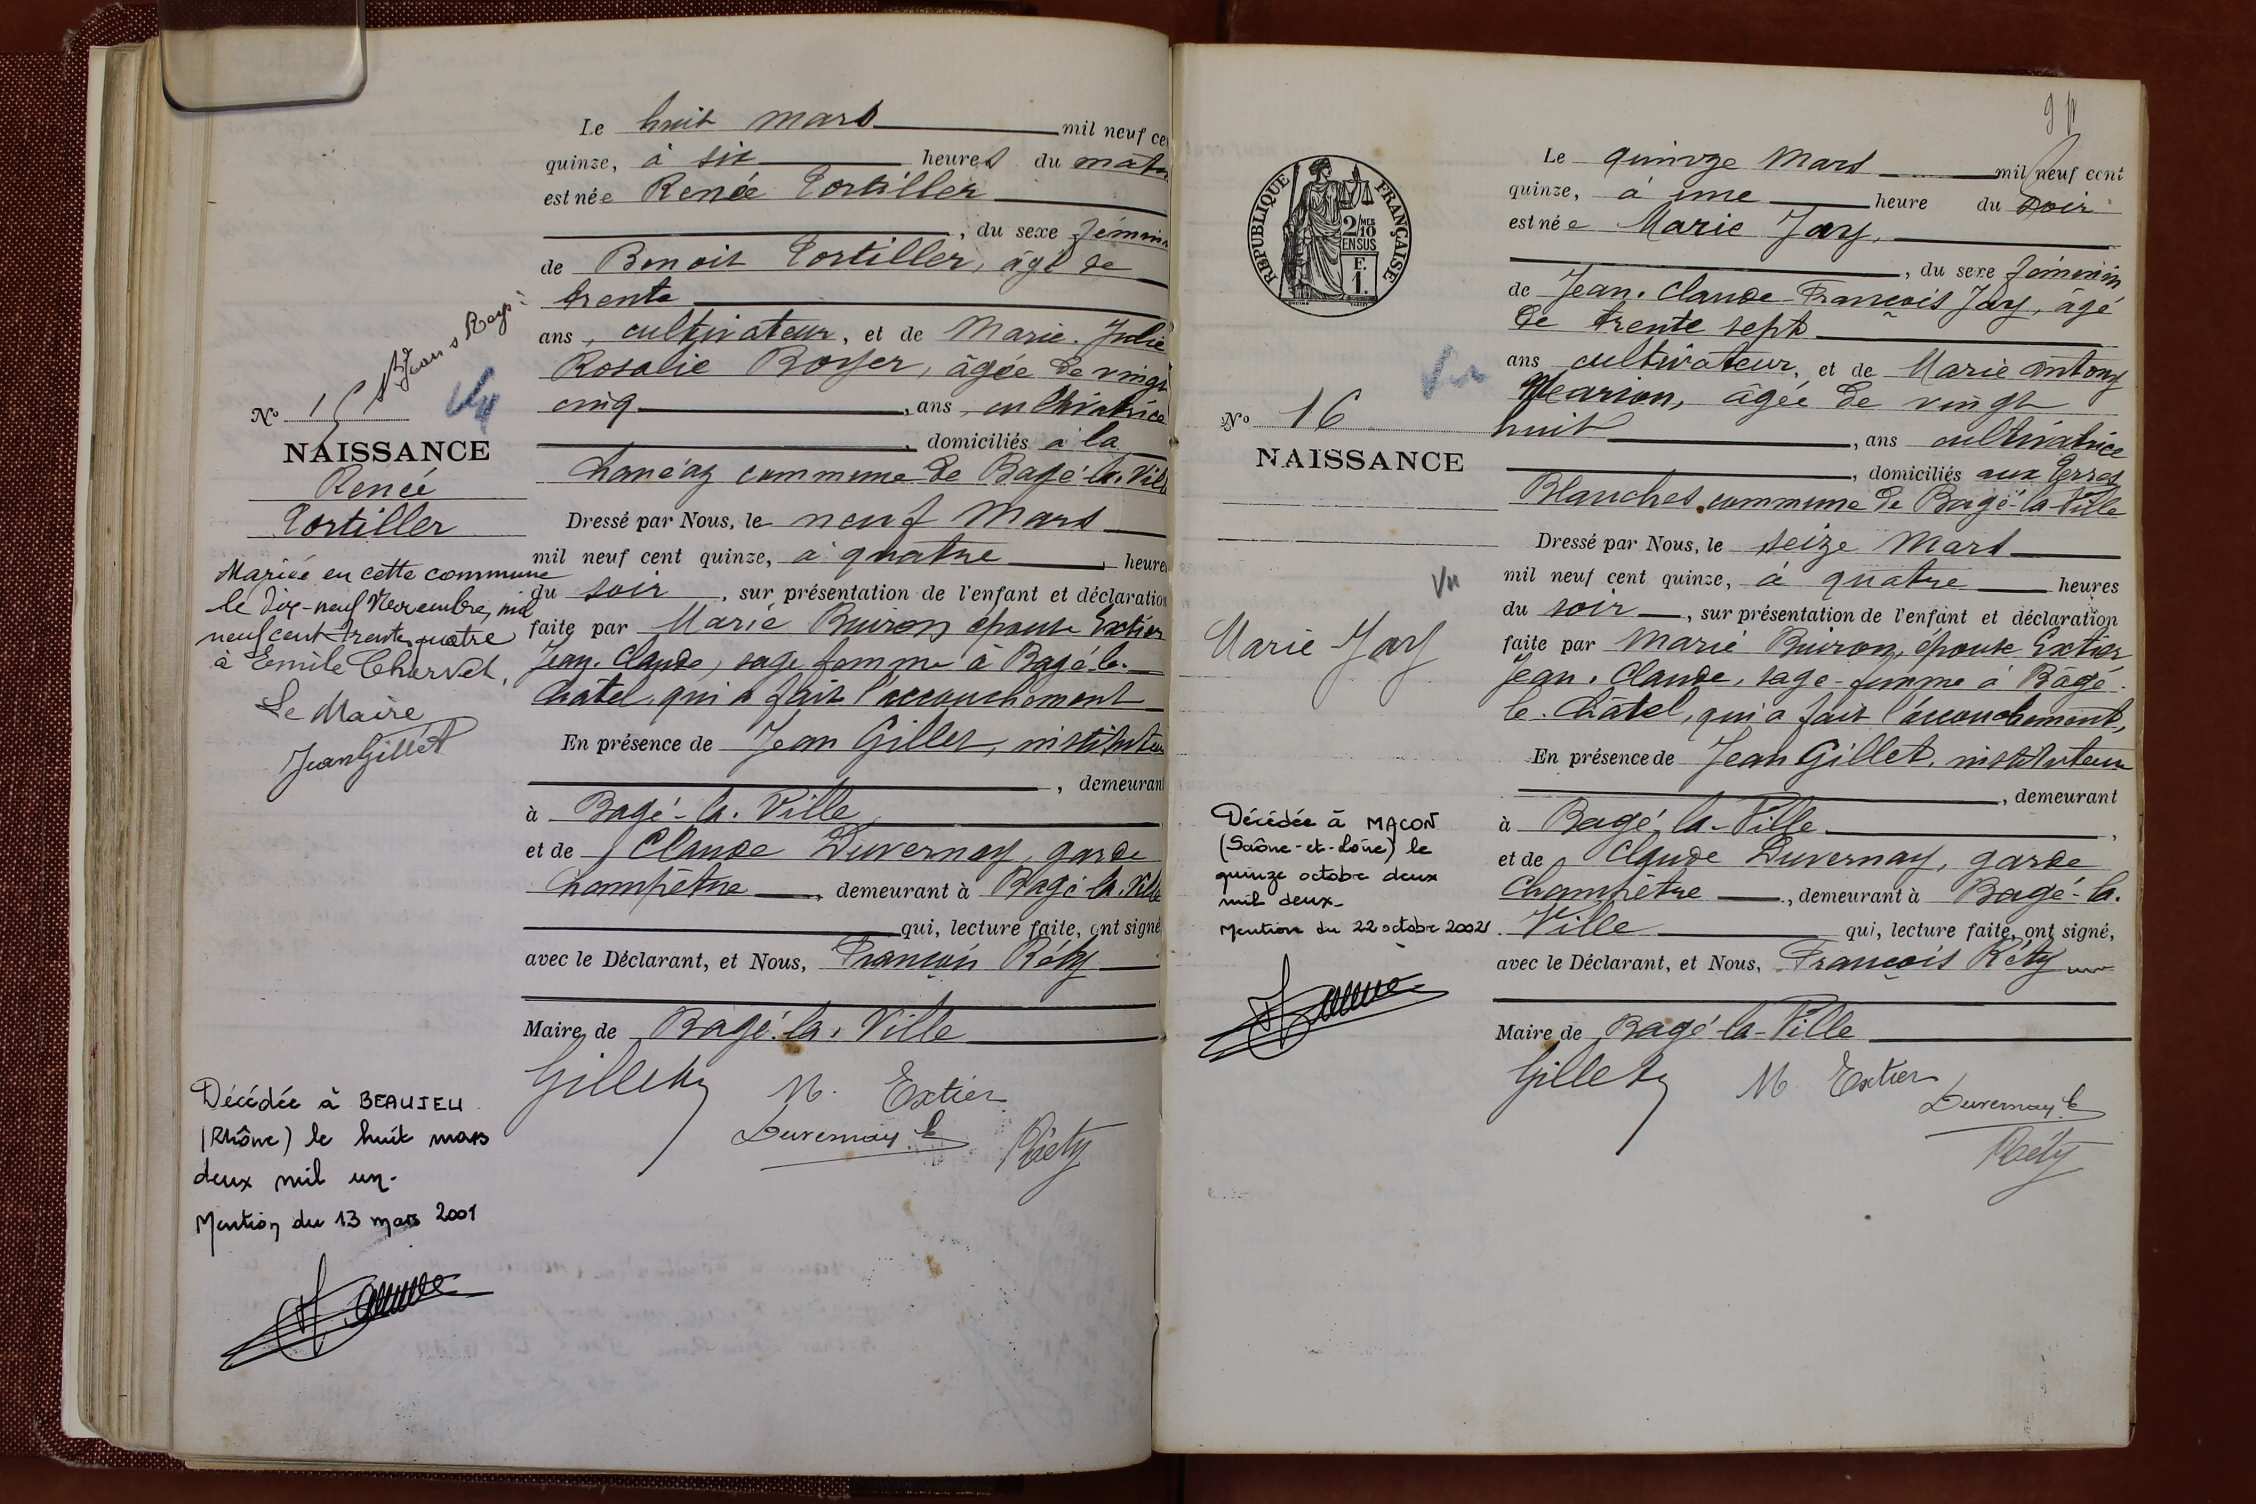 Le huit mars mil neuf ce
quinze, à six heures du matin
est née Renée Tortiller
, du sexe féminin
de Benoit Tortiller, âgé de
trente
ans, cultivateur, et de Marie. Julie
Rosalie Boyer, âgée de vingt
cinq, ans, cultivatrice
, domiciliés à la
commune de Bagé-la-Ville
Dressé par Nous, le neuf Mars
mil neuf cent quinze, à quatre heures
du soir, sur présentation de l'enfant et déclaration
faite par Marie Buiron épouse Extier
Jean. Claude, sage femme à Bagé-le-
Châtel, qui a fait l'accouchement
En présence de Jean Gillet, instituteur
, demeurant
à Bagé-la-Ville
et de Claude Duvernay, garde
Champêtre, demeurant à Bagé-la-Ville
qui, lecture faite, ont signé
avec le Déclarant, et Nous, François Réty
Maire de Bagé-la-Ville
Gillet
M. Extier
Duvernay C
Réty
St Jean s Reys:
Vu
No 15
NAISSANCE
Renée
Tortiller
Mariée en cette commune
le dix-neuf Novembre, mil
neuf cent trente quatre
à Emile Chervet.
Le Maire
Jean Gillet
Décédée à BEAUJEU
(Rhône) le huit mars
deux mil un.
Mention du 13 mars 2001
9
RÉPUBLIQUE FRANÇAISE
2/10 MES
EN SUS
F.
1.
Le quinze Mars mil neuf cent
quinze, à une heure du soir
est née Marie Jay,
, du sexe féminin
de Jean. Claude-François Jay, âgé
de trente sept
ans cultivateur, et de Marie Antony
Mearion, âgée de vingt
huit, ans cultivatrice
, domiciliés aux Terres
Blanches, commune de Bagé-la-Ville
Dressé par Nous, le seize Mars
mil neuf cent quinze, à quatre heures
du soir, sur présentation de l'enfant et déclaration
faite par Marie Buiron, épouse Extier
Jean. Claude, sage-femme à Bâgé-
le-Châtel, qui a fait l'accouchement,
En présence de Jean Gillet, instituteur
, demeurant
à Bagé-la-Ville,
et de Claude Duvernay, garde
Champêtre, demeurant à Bagé-la-
Ville qui, lecture faite, ont signé,
avec le Déclarant, et Nous, François Réty
Maire de Bagé-la-Ville
Gillet
M Extier
Duvernay C
Réty
Vu
No 16
NAISSANCE
Vu
Marie Jay
Décédée à MACON
(Saône-et-Loire) le
quinze octobre deux
mil deux.
Mention du 22 octobre 2002